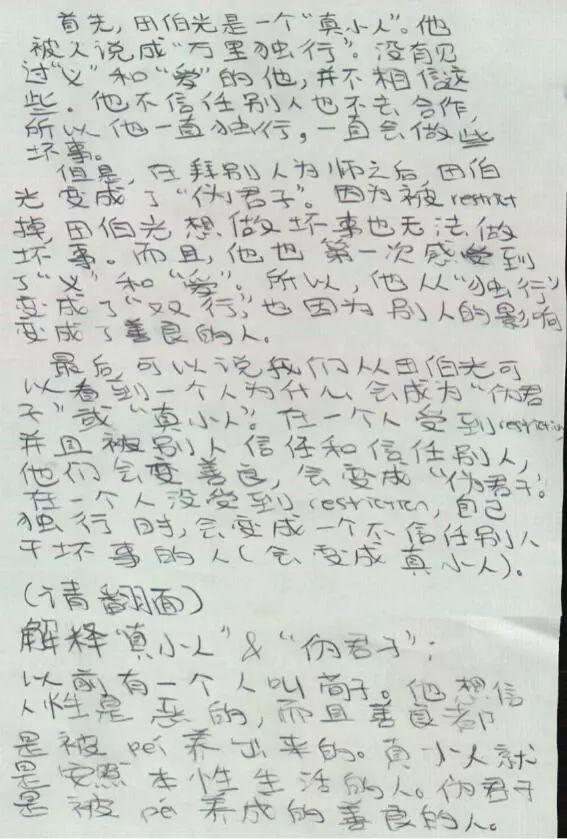 首先,田伯光是一个“真小人”。他
被人说成“万里独行”。没有见
过“义”和“爱”的他,并不相信这
些.他不信任别人也不去合作,
所以他一直独行,一直会做些
坏事。
但是,在拜别人为师之后,田伯
光变成了“伪君子”。因为被restrict
掉,田伯光想做坏事也无法做
坏事。而且,他也第一次感受到
了“义”和“爱”。所以,他从“独行”
变成了“双行”,也因为别人的影响
变成了善良的人。
最后,可以说我们从田伯光可
以看到一个人为什么会成为“伪君
子”或“真小人”。在一个人受到restriction
并且被别人信任和信任别人,
他们会变善良,会变成“伪君子”。
在一个人没受到restriction,自己
独行时,会变成一个不信任别人
干坏事的人(会变成真小人)。
(请翻面)
解释“真小人”&“伪君子”:
以前有一个人叫荀子。他想信
人性是恶的,而且善良都
是被péi养出来的。真小人就
是安照本性生活的人。伪君子
是被péi养成的善良的人。